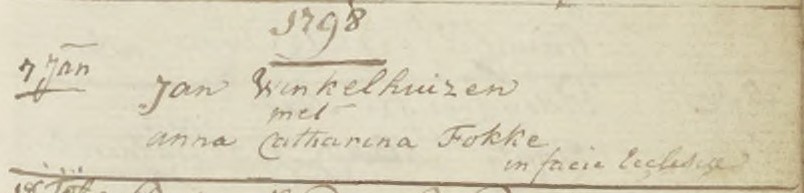 1798
7 Jan Jan Winkelhuizen
met
anna Catharina Fokke
in facie Ecclesiæ